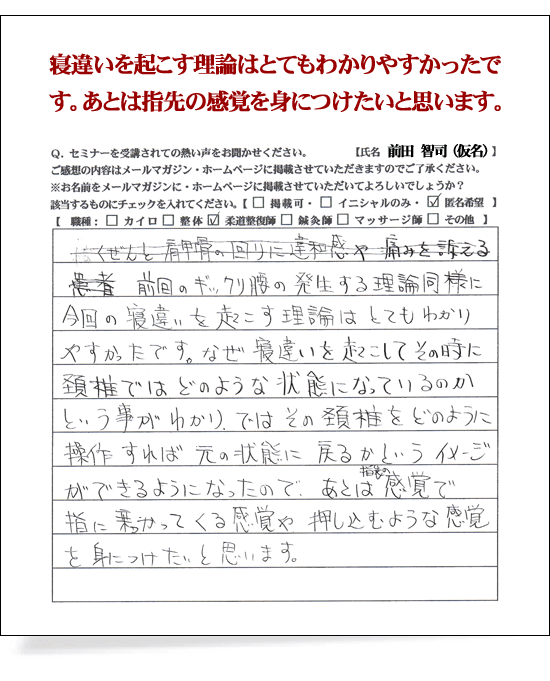 寝違いを起こす理論はとてもわかりやすかったで
す。あとは指先の感覚を身につけたいと思います。
Q. セミナーを受講されての熱い声をお聞かせください。 【氏名 前田 智司（仮名）】
ご感想の内容はメールマガジン・ホームページに掲載させていただきますのでご了承ください。
※お名前をメールマガジンに・ホームページに掲載させていただいてよろしいでしょうか？
該当するものにチェックを入れてください。【 □ 掲載可・ □ イニシャルのみ・ ☑ 匿名希望 】
【 職種：□ カイロ □ 整体 ☑ 柔道整復師 □ 鍼灸師 □ マッサージ師 □ その他 】
くぜんと肩甲骨の回りに違和感や痛みを訴える
患者 前回のギックリ腰の発生する理論同様に
今回の寝違いを起こす理論はとてもわかり
やすかったです。なぜ寝違いを起こしてその時に
頚椎ではどのような状態になっているのか
という事がわかり、ではその頚椎をどのように
操作すれば元の状態に戻るかというイメージ
ができるようになったので、あとは指先の感覚で
指に乗っかってくる感覚や押し込むような感覚
を身につけたいと思います。